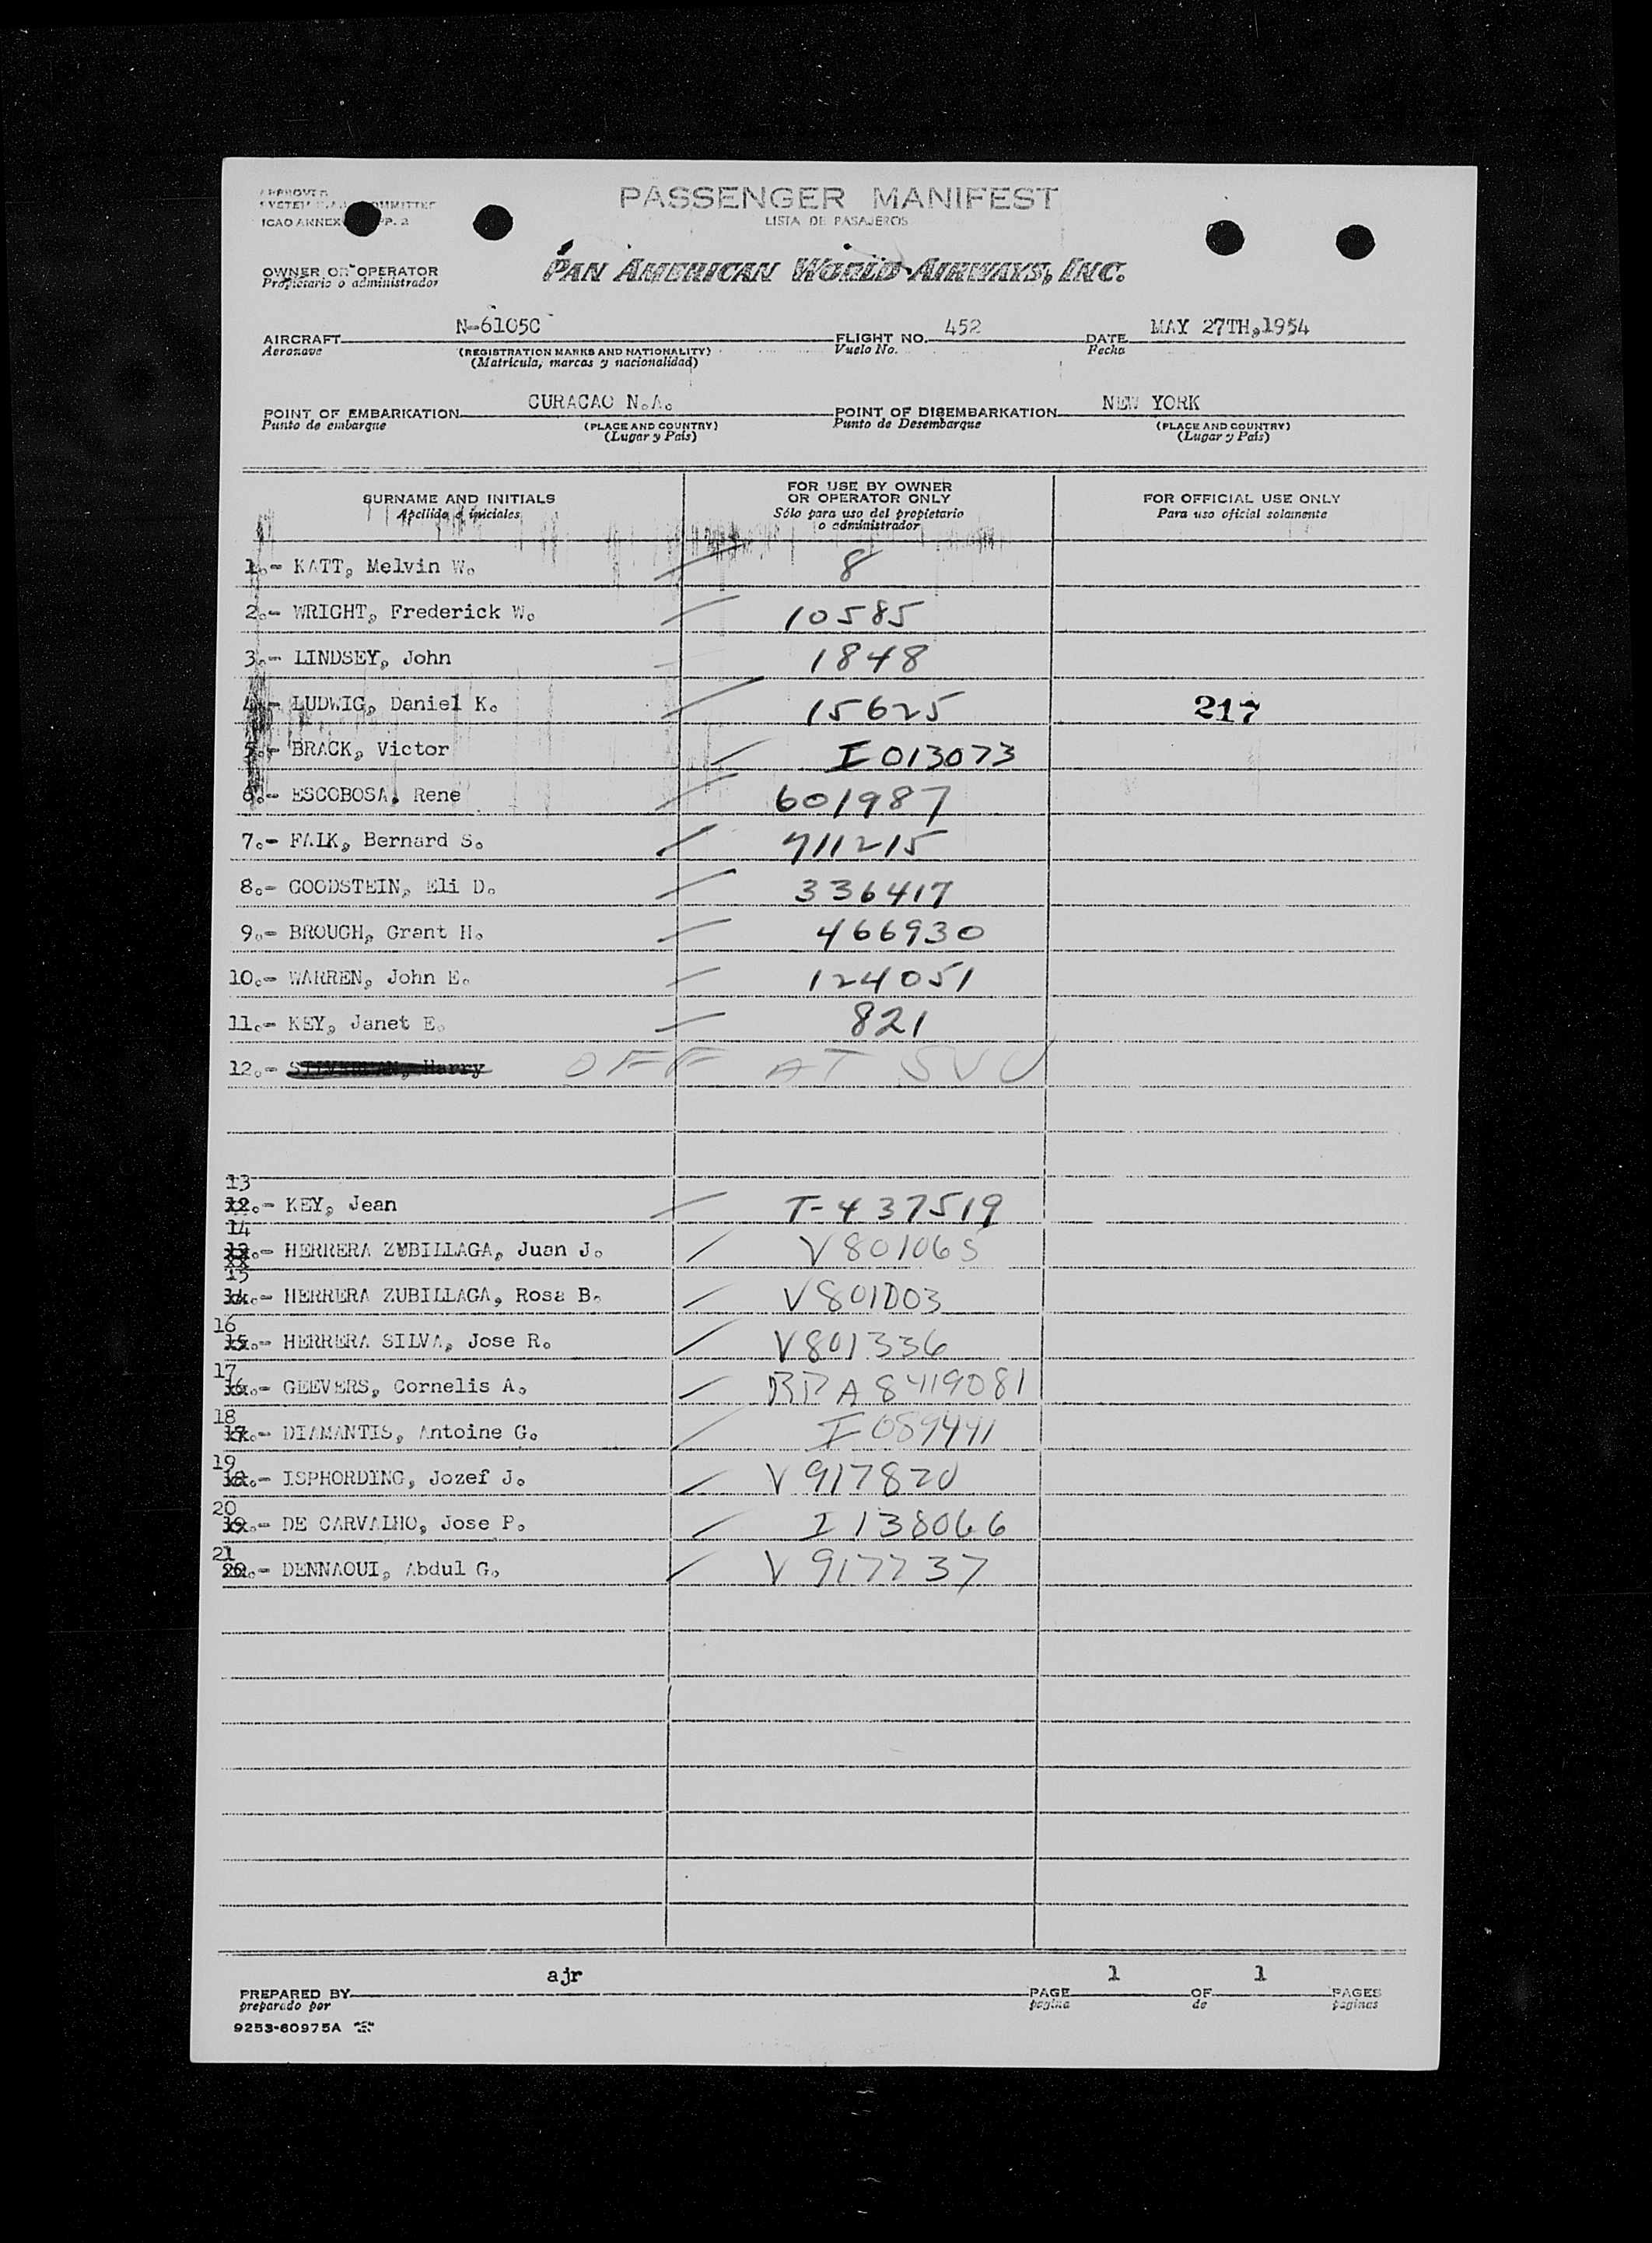 PASSENGER MANIFEST
LISTA DE PASAJEROS
ICAO ANNEX
OWNER OR OPERATOR
Propietario o administrador
PAN AMERICAN WORLD AIRWAYS, INC.
AIRCRAFT N-6105C FLIGHT NO. 452 DATE MAY 27TH,1954
Aeronave (REGISTRATION MARKS AND NATIONALITY) Vuelo No. Fecha
(Matrícula, marcas y nacionalidad)
POINT OF EMBARKATION CURACAO N.A. POINT OF DISEMBARKATION NEW YORK
Punto de embarque (PLACE AND COUNTRY) Punto de Desembarque (PLACE AND COUNTRY)
(Lugar y País) (Lugar y País)
SURNAME AND INITIALS FOR USE BY OWNER OR OPERATOR ONLY FOR OFFICIAL USE ONLY
Apellido e iniciales Sólo para uso del propietario o administrador Para uso oficial solamente
1.- KATT, Melvin W. 8
2.- WRIGHT, Frederick W. 10585
3.- LINDSEY, John 1848
4.- LUDWIG, Daniel K. 15625 217
5.- BRACK, Victor I 013073
6.- ESCOBOSA, Rene 601987
7.- FALK, Bernard S. 711215
8.- GOODSTEIN, Eli D. 336417
9.- BROUGH, Grant H. 466930
10.- WARREN, John E. 124051
11.- KEY, Janet E. 821
12.- Harry OFF AT SVU
13
12.- KEY, Jean T-437519
14
13.- HERRERA ZUBILLAGA, Juan J. V 801065
15
14.- HERRERA ZUBILLAGA, Rosa B. V 801003
16
15.- HERRERA SILVA, Jose R. V 801336
17
16.- GEEVERS, Cornelis A. A 8419081
18
17.- DIAMANTIS, Antoine G. I 059441
19
18.- ISPHORDING, Jozef J. V 917820
20
19.- DE CARVALHO, Jose P. I 138066
21
20.- DENNAOUI, Abdul G. V 917737
ajr 1 1
PREPARED BY PAGE OF PAGES
preparado por página de páginas
9253-60975A